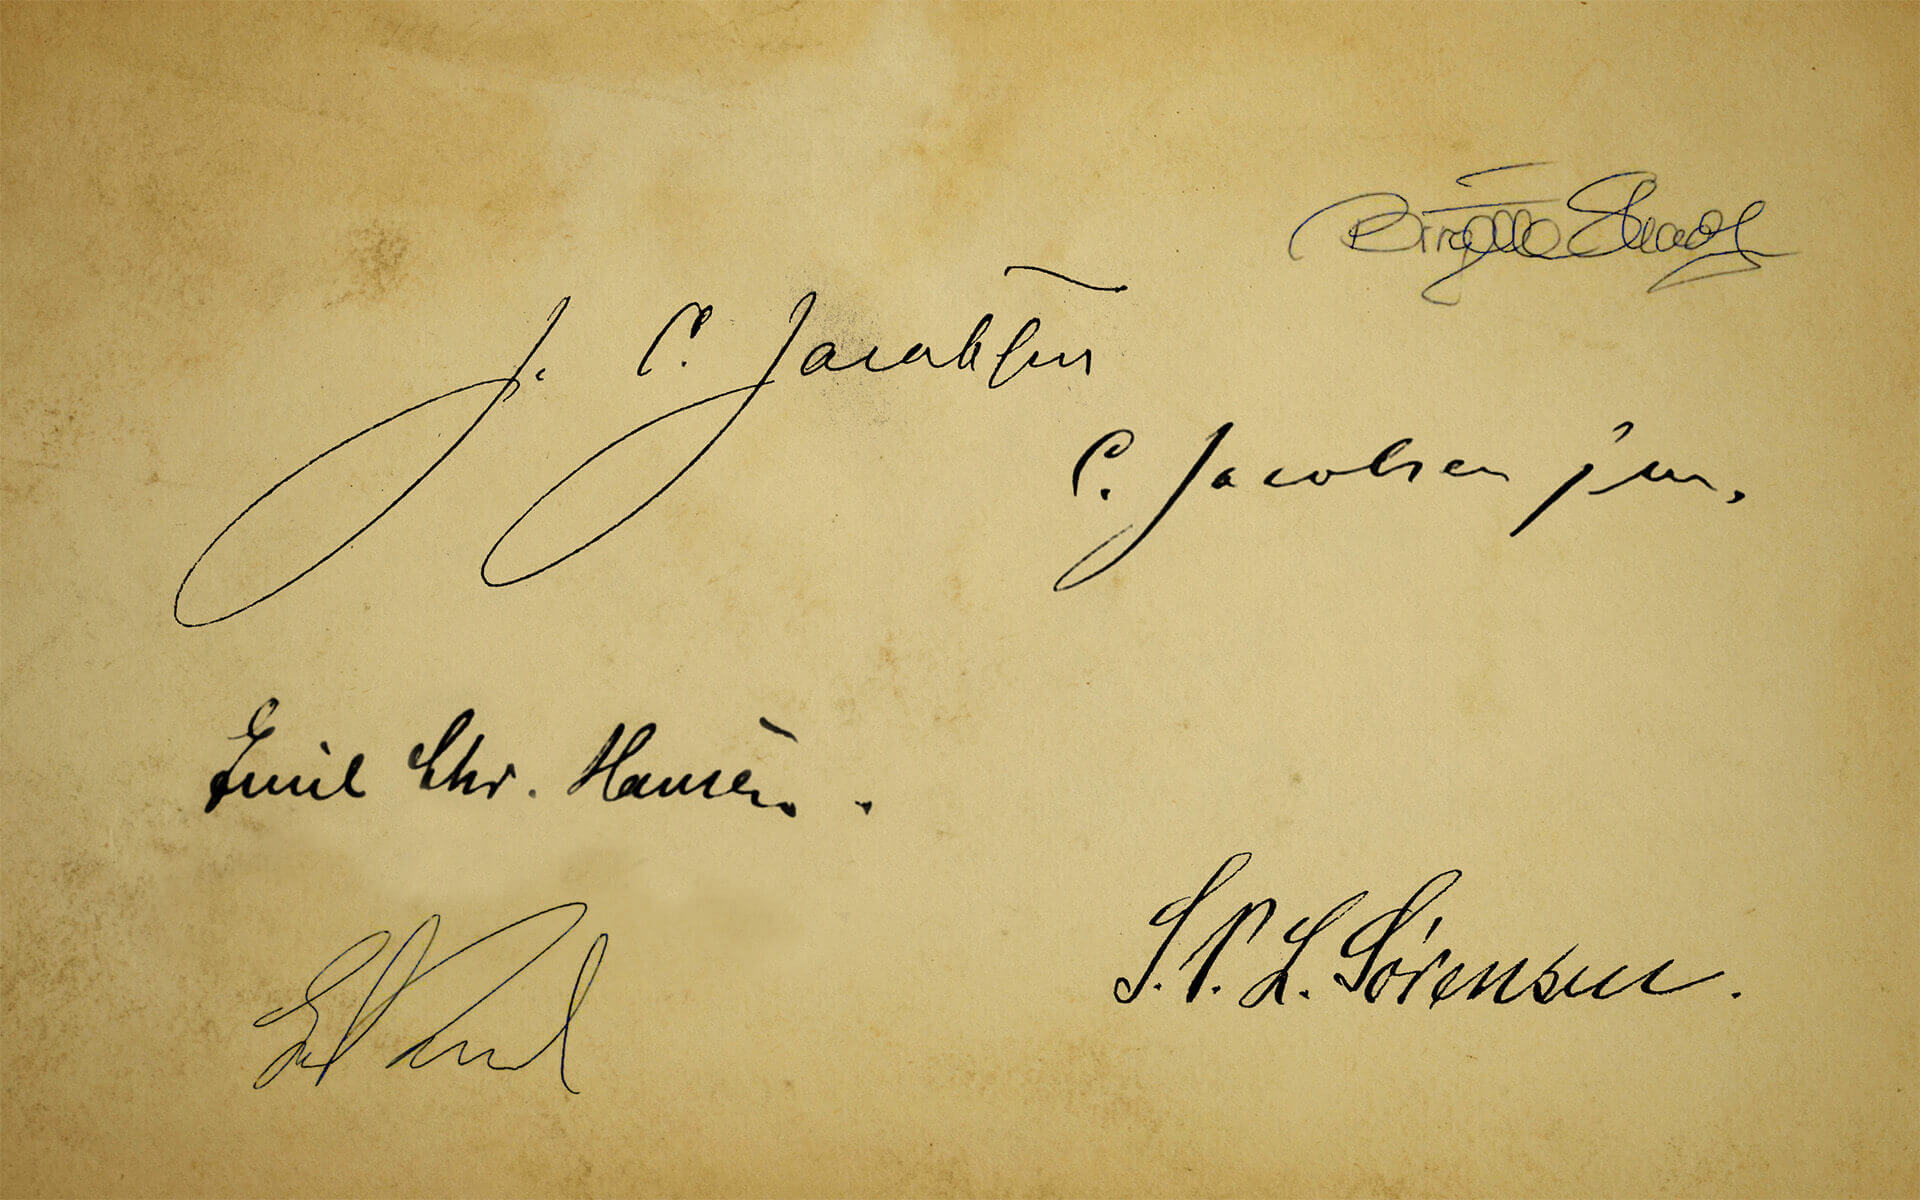 Birgitte Skadh
J. C. Jacobsen
C. Jacobsen jun.
Emil Chr. Hansen.
S. P. L. Sörensen.